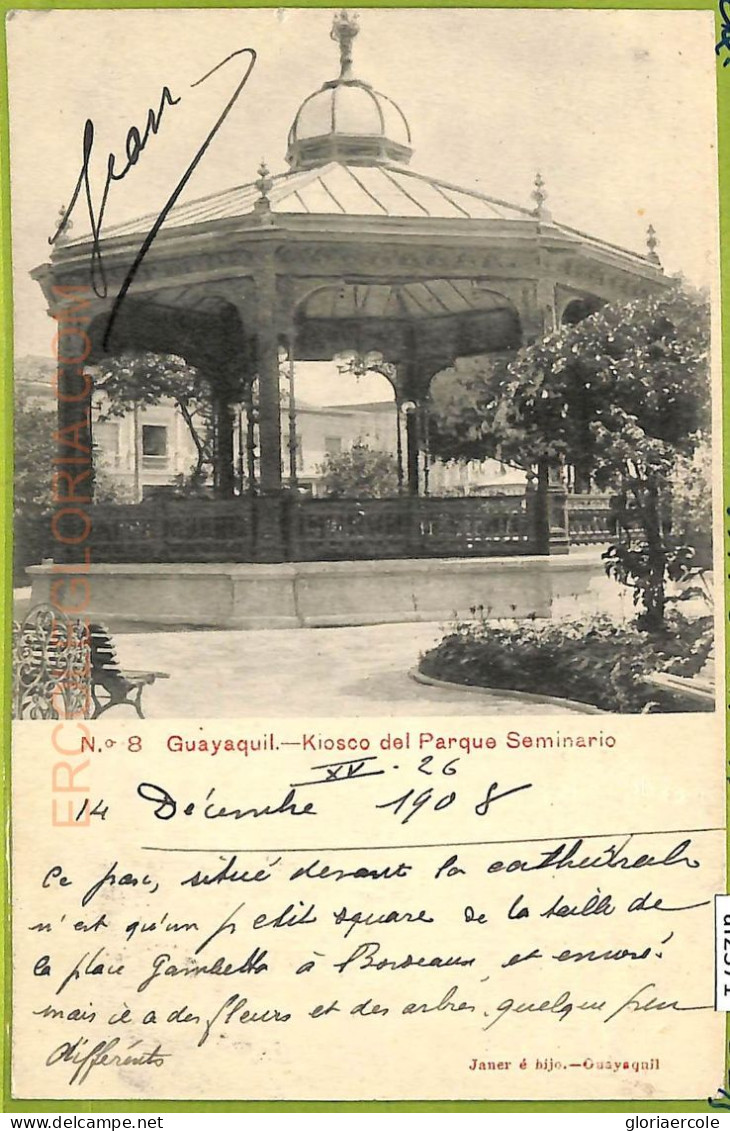 Jean
ERCOLEGLORIA.COM
N.º 8 Guayaquil.—Kiosco del Parque Seminario
XV - 26
14 Décembre 1908
Ce parc, situé devant la cathédrale
n'est qu'un petit square de la taille de
la place Gambetta à Bordeaux, et encore!
mais il a des fleurs et des arbres quelque peu
différents
Janer é hijo.—Guayaquil
gloriaercole